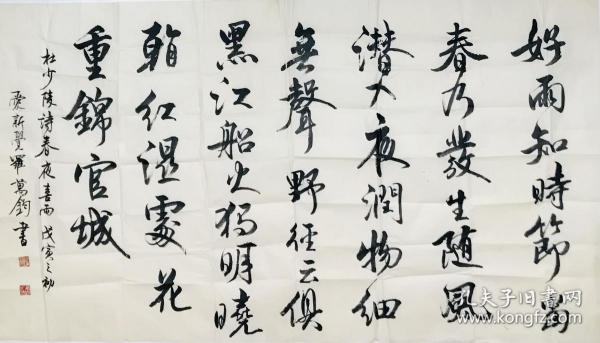 好雨知時節當
春乃發生随風
潛入夜潤物細
無聲野徑云俱
黑江船火獨明曉
看紅濕處花
重錦官城
杜少陵詩春夜喜雨戊寅之初
愛新覺羅萬鈞書
孔夫子旧書網
www.kongfz.com